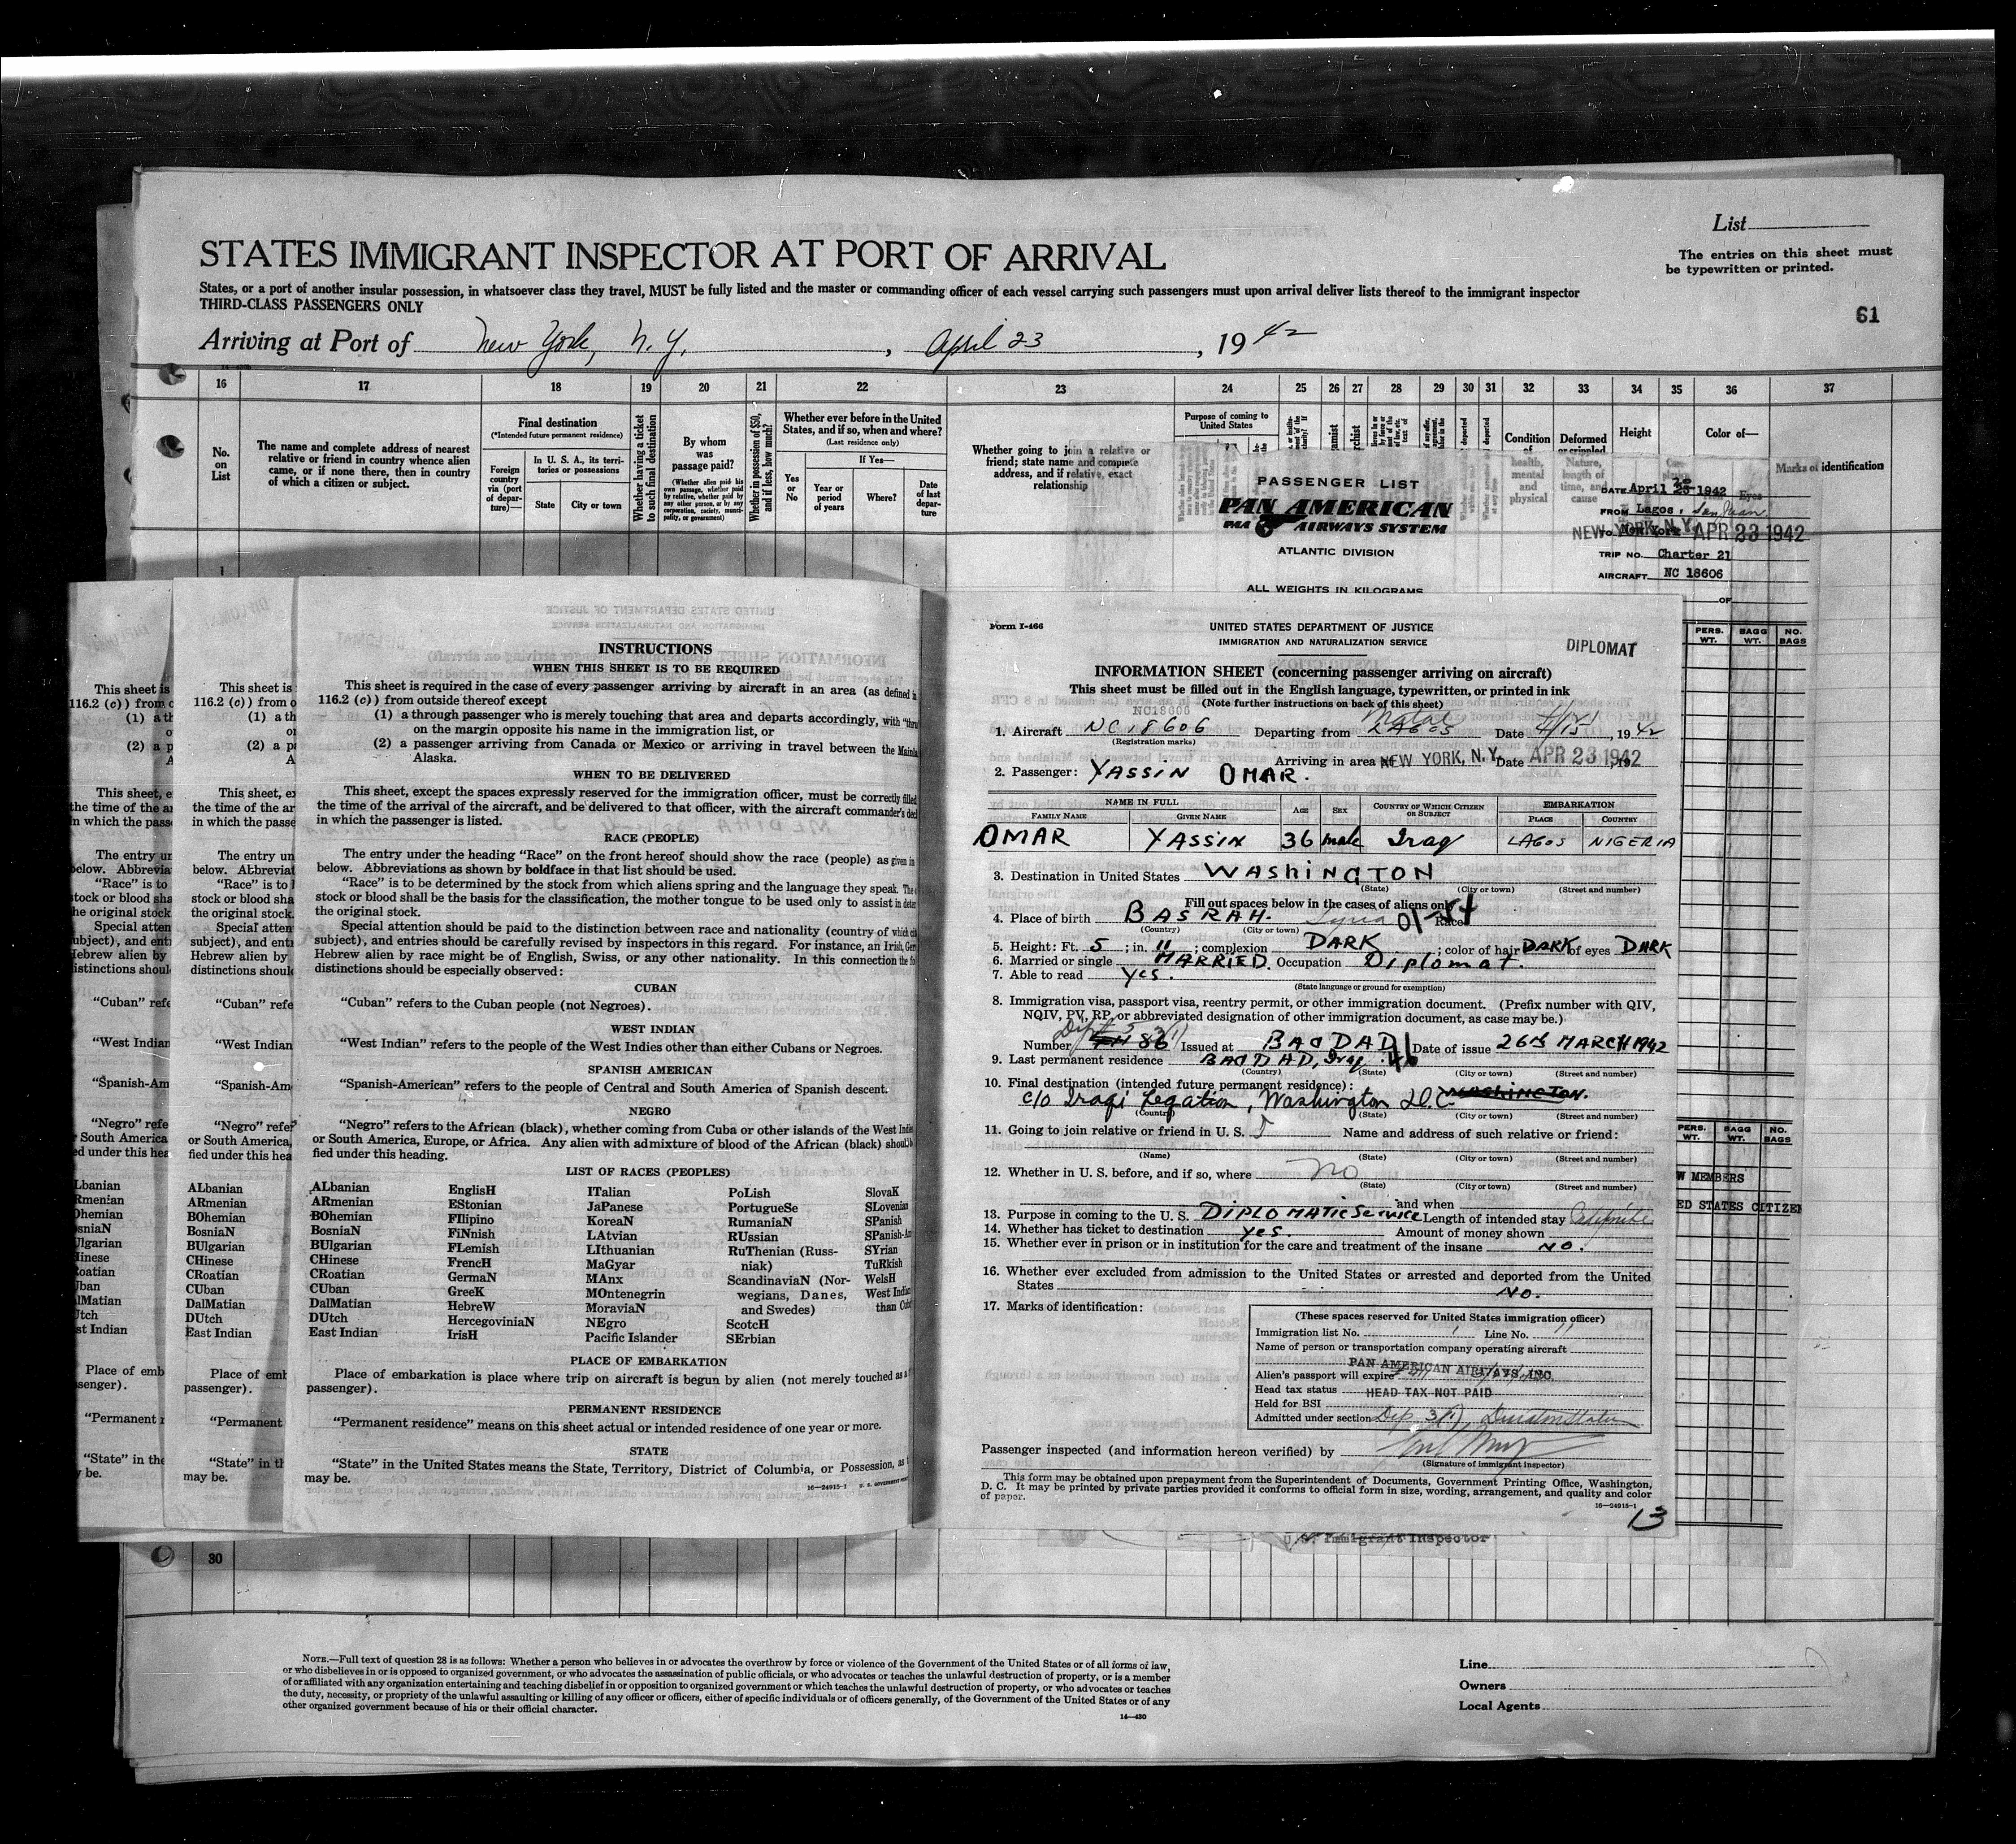 List
The entries on this sheet must
be typewritten or printed.
61
STATES IMMIGRANT INSPECTOR AT PORT OF ARRIVAL
States, or a port of another insular possession, in whatsoever class they travel, MUST be fully listed and the master or commanding officer of each vessel carrying such passengers must upon arrival deliver lists thereof to the immigrant inspector
THIRD-CLASS PASSENGERS ONLY
Arriving at Port of New York, N.Y., April 23, 1942
16 17 18 19 20 21 22 23 24 25 26 27 28 29 30 31 32 33 34 35 36 37
No. on List
The name and complete address of nearest relative or friend in country whence alien came, or if none there, then in country of which a citizen or subject.
Final destination
(*Intended future permanent residence)
Foreign country via (port of departure)—
In U. S. A., its territories or possessions
State
City or town
Whether having a ticket to such final destination
By whom was passage paid?
(Whether alien paid his own passage, whether paid by relative, whether paid by any other person, or by any corporation, society, municipality, or government)
Whether in possession of $50, and if less, how much?
Whether ever before in the United States, and if so, when and where?
(Last residence only)
Yes or No
If Yes—
Year or period of years
Where?
Date of last departure
Whether going to join a relative or friend; state name and complete address, and if relative, exact relationship
Purpose of coming to United States
Condition of health, mental and physical
Deformed or crippled. Nature, length of time, and cause
Height
Color of—
Eyes
Marks of identification
PASSENGER LIST
PAN AMERICAN
PAA AIRWAYS SYSTEM
ATLANTIC DIVISION
ALL WEIGHTS IN KILOGRAMS
DATE April 1942
FROM Lagos, San Juan
TO New York
NEW YORK, N.Y. APR 23 1942
TRIP NO. Charter 21
AIRCRAFT NC 18606
OF
PERS. WT. BAGG WT. NO. BAGS
PERS. WT. BAGG WT. NO. BAGS
W MEMBERS
ED STATES CITIZEN
INSTRUCTIONS
WHEN THIS SHEET IS TO BE REQUIRED
This sheet is required in the case of every passenger arriving by aircraft in an area (as defined in
116.2 (c)) from outside thereof except
(1) a through passenger who is merely touching that area and departs accordingly, with "thru
on the margin opposite his name in the immigration list, or
(2) a passenger arriving from Canada or Mexico or arriving in travel between the Mainla
Alaska.
WHEN TO BE DELIVERED
This sheet, except the spaces expressly reserved for the immigration officer, must be correctly filled
the time of the arrival of the aircraft, and be delivered to that officer, with the aircraft commander's decl
in which the passenger is listed.
RACE (PEOPLE)
The entry under the heading "Race" on the front hereof should show the race (people) as given in
below. Abbreviations as shown by boldface in that list should be used.
"Race" is to be determined by the stock from which aliens spring and the language they speak. The
stock or blood shall be the basis for the classification, the mother tongue to be used only to assist in deter
the original stock.
Special attention should be paid to the distinction between race and nationality (country of which citi
subject), and entries should be carefully revised by inspectors in this regard. For instance, an Irish, Ger
Hebrew alien by race might be of English, Swiss, or any other nationality. In this connection the fo
distinctions should be especially observed:
CUBAN
"Cuban" refers to the Cuban people (not Negroes).
WEST INDIAN
"West Indian" refers to the people of the West Indies other than either Cubans or Negroes.
SPANISH AMERICAN
"Spanish-American" refers to the people of Central and South America of Spanish descent.
NEGRO
"Negro" refers to the African (black), whether coming from Cuba or other islands of the West Indie
or South America, Europe, or Africa. Any alien with admixture of blood of the African (black) should b
fied under this heading.
LIST OF RACES (PEOPLES)
ALbanian EnglisH ITalian PoLish SlovaK
ARmenian EStonian JaPanese PortugueSe SLovenian
BOhemian FIlipino KoreaN RumaniaN SPanish
BosniaN FiNnish LAtvian RUssian SPanish-Am
BUlgarian FLemish LIthuanian RuThenian (Russniak) SYrian
CHinese FrencH MaGyar TuRkish
CRoatian GermaN MAnx ScandinaviaN (Norwegians, Danes, and Swedes) WelsH
CUban GreeK MOntenegrin West Indian
DalMatian HebreW MoraviaN than Cub
DUtch HercegoviniaN NEgro ScotcH
East Indian IrisH Pacific Islander SErbian
PLACE OF EMBARKATION
Place of embarkation is place where trip on aircraft is begun by alien (not merely touched as a
passenger).
PERMANENT RESIDENCE
"Permanent residence" means on this sheet actual or intended residence of one year or more.
STATE
"State" in the United States means the State, Territory, District of Columbia, or Possession, as
may be.
16—24915-1
Form I-466
UNITED STATES DEPARTMENT OF JUSTICE
IMMIGRATION AND NATURALIZATION SERVICE
DIPLOMAT
INFORMATION SHEET (concerning passenger arriving on aircraft)
This sheet must be filled out in the English language, typewritten, or printed in ink
(Note further instructions on back of this sheet)
NC18606
1. Aircraft NC18606 Departing from Natal LAGOS Date 4/15, 1942
(Registration marks)
Arriving in area at NEW YORK, N.Y. Date APR 23 1942
2. Passenger: YASSIN OMAR.
NAME IN FULL AGE SEX COUNTRY OF WHICH CITIZEN OR SUBJECT EMBARKATION
FAMILY NAME GIVEN NAME PLACE COUNTRY
OMAR YASSIN 36 male Iraq LAGOS NIGERIA
3. Destination in United States WAShINGTON
(State) (City or town) (Street and number)
Fill out spaces below in the cases of aliens only
4. Place of birth BASRAH. Syria Race
(Country) (City or town)
5. Height: Ft. 5; in. 11; complexion DARK; color of hair DARK of eyes DARK
6. Married or single MARRIED. Occupation Diplomat.
7. Able to read yes.
(State language or ground for exemption)
8. Immigration visa, passport visa, reentry permit, or other immigration document. (Prefix number with QIV,
NQIV, PV, RP, or abbreviated designation of other immigration document, as case may be.)
Number 86 Issued at BAGDAD Date of issue 26th MARCH 1942
9. Last permanent residence BAGDAD, Iraq.
(Country) (State) (City or town) (Street and number)
10. Final destination (intended future permanent residence):
c/o Iraqi Legation, Washington D.C. WAShINGTON.
(Country) (State) (City or town) (Street and number)
11. Going to join relative or friend in U. S. Name and address of such relative or friend:
(Name) (State) (City or town) (Street and number)
12. Whether in U. S. before, and if so, where no
(State) (City or town) (Street and number)
and when
13. Purpose in coming to the U. S. DIPLOMATIC Service Length of intended stay
14. Whether has ticket to destination yes. Amount of money shown
15. Whether ever in prison or in institution for the care and treatment of the insane NO.
16. Whether ever excluded from admission to the United States or arrested and deported from the United
States NO.
17. Marks of identification:
(These spaces reserved for United States immigration officer)
Immigration list No. 1 Line No. 11
Name of person or transportation company operating aircraft
PAN AMERICAN AIRWAYS, INC.
Alien's passport will expire
Head tax status HEAD TAX NOT PAID
Held for BSI
Admitted under section Dip. 3(1)
Passenger inspected (and information hereon verified) by
(Signature of immigrant inspector)
This form may be obtained upon prepayment from the Superintendent of Documents, Government Printing Office, Washington,
D. C. It may be printed by private parties provided it conforms to official form in size, wording, arrangement, and quality and color
of paper.
16—24915-1
13
U.S. Immigrant Inspector
30
NOTE.—Full text of question 28 is as follows: Whether a person who believes in or advocates the overthrow by force or violence of the Government of the United States or of all forms of law,
or who disbelieves in or is opposed to organized government, or who advocates the assassination of public officials, or who advocates or teaches the unlawful destruction of property, or is a member
of or affiliated with any organization entertaining and teaching disbelief in or opposition to organized government or which teaches the unlawful destruction of property, or who advocates or teaches
the duty, necessity, or propriety of the unlawful assaulting or killing of any officer or officers, either of specific individuals or of officers generally, of the Government of the United States or of any
other organized government because of his or their official character.
14—430
Line
Owners
Local Agents